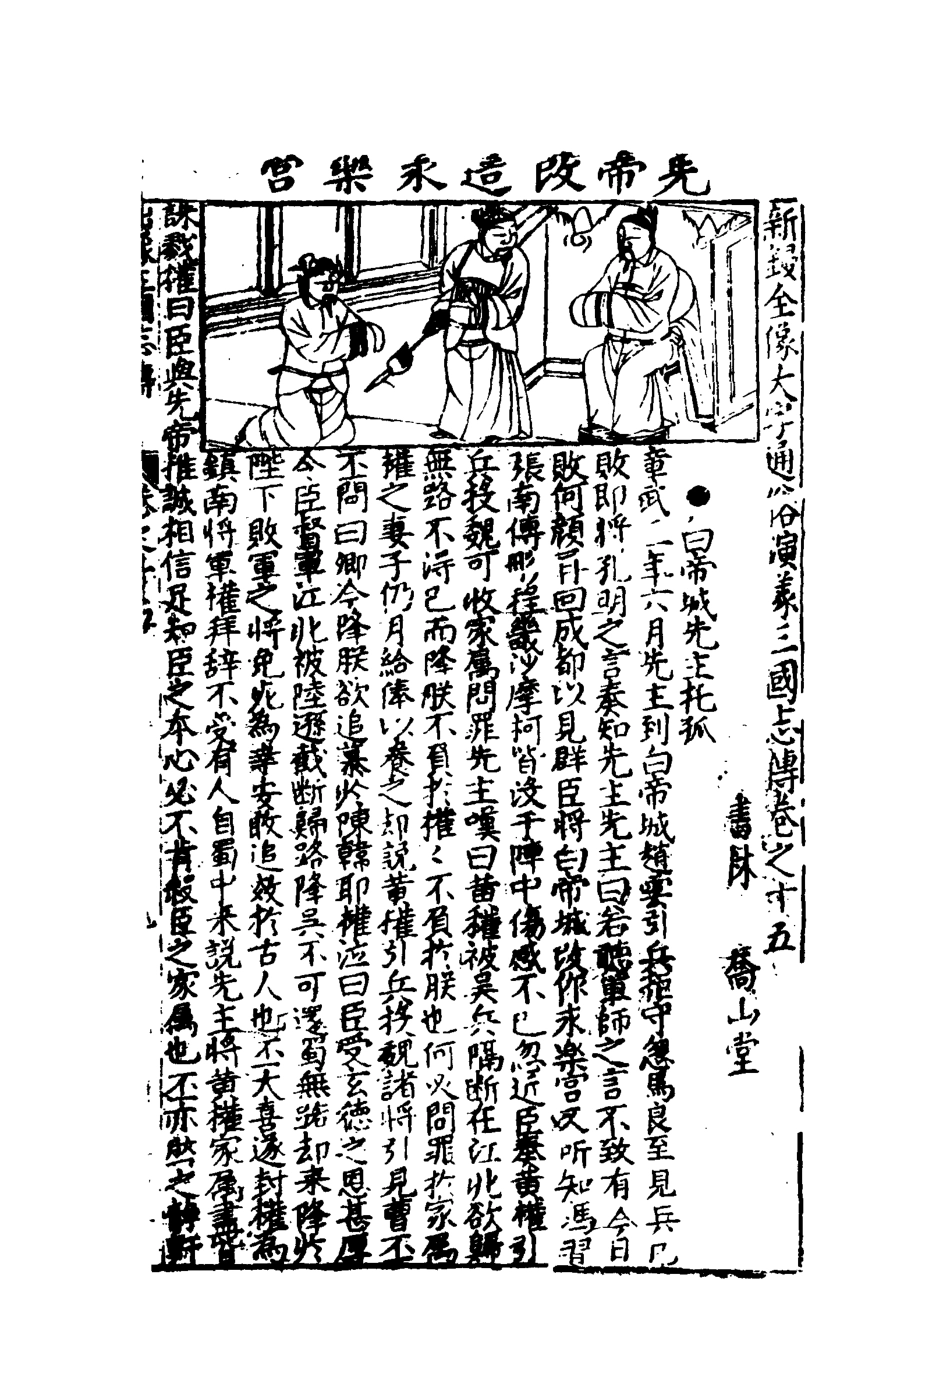 先帝改造永樂宮
新鋟全像大字通俗演義三國志傳卷之十五
書林 喬山堂
●白帝城先主托孤
章武二年六月先主到白帝城趙雲引兵拒守忽馬良至見兵已
敗即將孔明之言奏知先主先主曰若聽軍師之言不致有今日
敗何顏再回成都以見群臣將白帝城改作永樂宮又听知馮習
張南傅彤程畿沙摩柯皆沒于陣中傷感不已忽近臣奏黃權引
兵投魏可收家属問罪先主嘆曰黃權被吳兵隔断在江北欲歸
無路不得已而降朕不負扵權〻不負扵朕也何必問罪扵家属
權之妻子仍月給俸以養之却説黃權引兵投魏諸將引見曹丕
丕問曰卿今降朕欲追慕扵陳韓耶權泣曰臣受玄德之恩甚厚
今臣督軍江北被陸遜截断歸路降吳不可還蜀無路却来降扵
陛下敗軍之將免死為幸安敢追效扵古人也丕大喜遂封權為
鎮南将軍權拜辞不受有人自蜀中来説先主將黃權家属盡皆
誅戮權曰臣與先帝推誠相信足知臣之本心必不肯殺臣之家属也丕亦然之靜軒